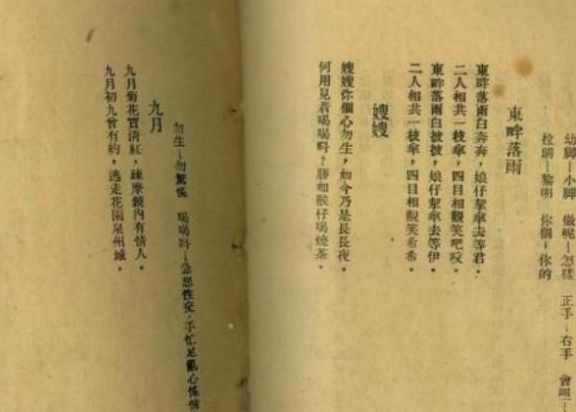 幼脚─小脚 做呢─怎樣 正手─右手 會唱─
─黎明 你個─你的
東畔落雨
東畔落雨白奔奔,娘仔挈傘去等君。
二人相共一枝傘,四目相觀笑吧。
東畔落雨白披披,娘仔挈傘去等伊。
二人相共一枝傘,四目相觀笑希希。
嫂嫂
嫂嫂你個心勿生,如今乃是長長夜。
何用見着喝喝?勝如猴仔喝燒茶。
勿生─勿驚慌 喝喝─急思性安,手忙足亂心慌
九月
九月菊花實清紅,鏡內有情人。
九月初九曾有約,逃走花園泉州城。